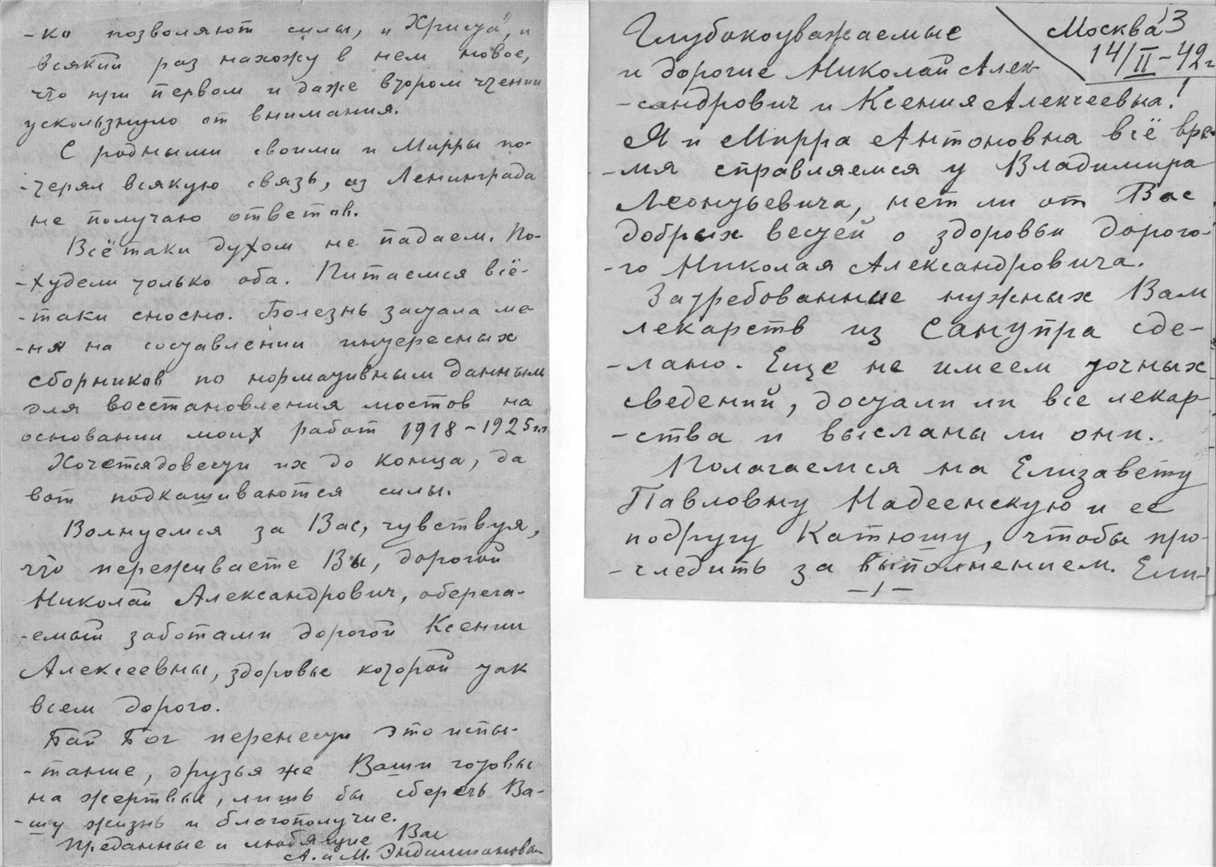 -ко позволяют силы, и „Христа", и
всякий раз нахожу в нем новое,
что при первом и даже втором чтении
ускользнуло от внимания.
С родными своими и Мирры по-
-терял всякую связь, из Ленинграда
не получаю ответов.
Всётаки духом не падаем. По-
-худели только оба. Питаемся всё-
-таки сносно. Болезнь застала ме-
-ня на составлении интересных
сборников по нормативным данным
для восстановления мостов на
основании моих работ 1918-1925 гг
Хочется довести их до конца, да
вот подкашиваются силы.
Волнуемся за Вас, чувствуя,
что переживаете Вы, дорогой
Николай Александрович, оберега-
-емый заботами дорогой Ксении
Алексеевны, здоровье которой так
всем дорого.
Дай Бог перенести это испы-
-тание, друзья же Ваши готовы
на жертвы, лишь бы сберечь Ва-
-шу жизнь и благополучие.
Преданные и любящие Вас
А. и М.
3
Москва
14/II-42 г
Глубокоуважаемые
и дорогие Николай Алек-
-сандрович и Ксения Алексеевна!
Я и Мирра Антоновна всё вре-
-мя справляемся у Владимира
Леонтьевича, нет ли от Вас
добрых вестей о здоровьи дорого-
-го Николая Александровича.
Затребование нужных Вам
лекарств из Санупра сде-
-лано. Еще не имеем точных
сведений, достали ли все лекар-
-ства и высланы ли они.
Полагаемся на Елизавету
Павловну Надеенскую и ее
подругу Катюшу, чтобы про-
-следить за выполнением. Ели-
-1-